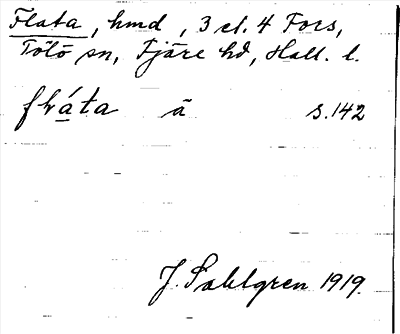 Flata, hmd, 3 cl. 4 Fors,
Tölö sn, Fjäre hd, Hall. l.
flàta ā s. 142
J. Sahlgren 1919.